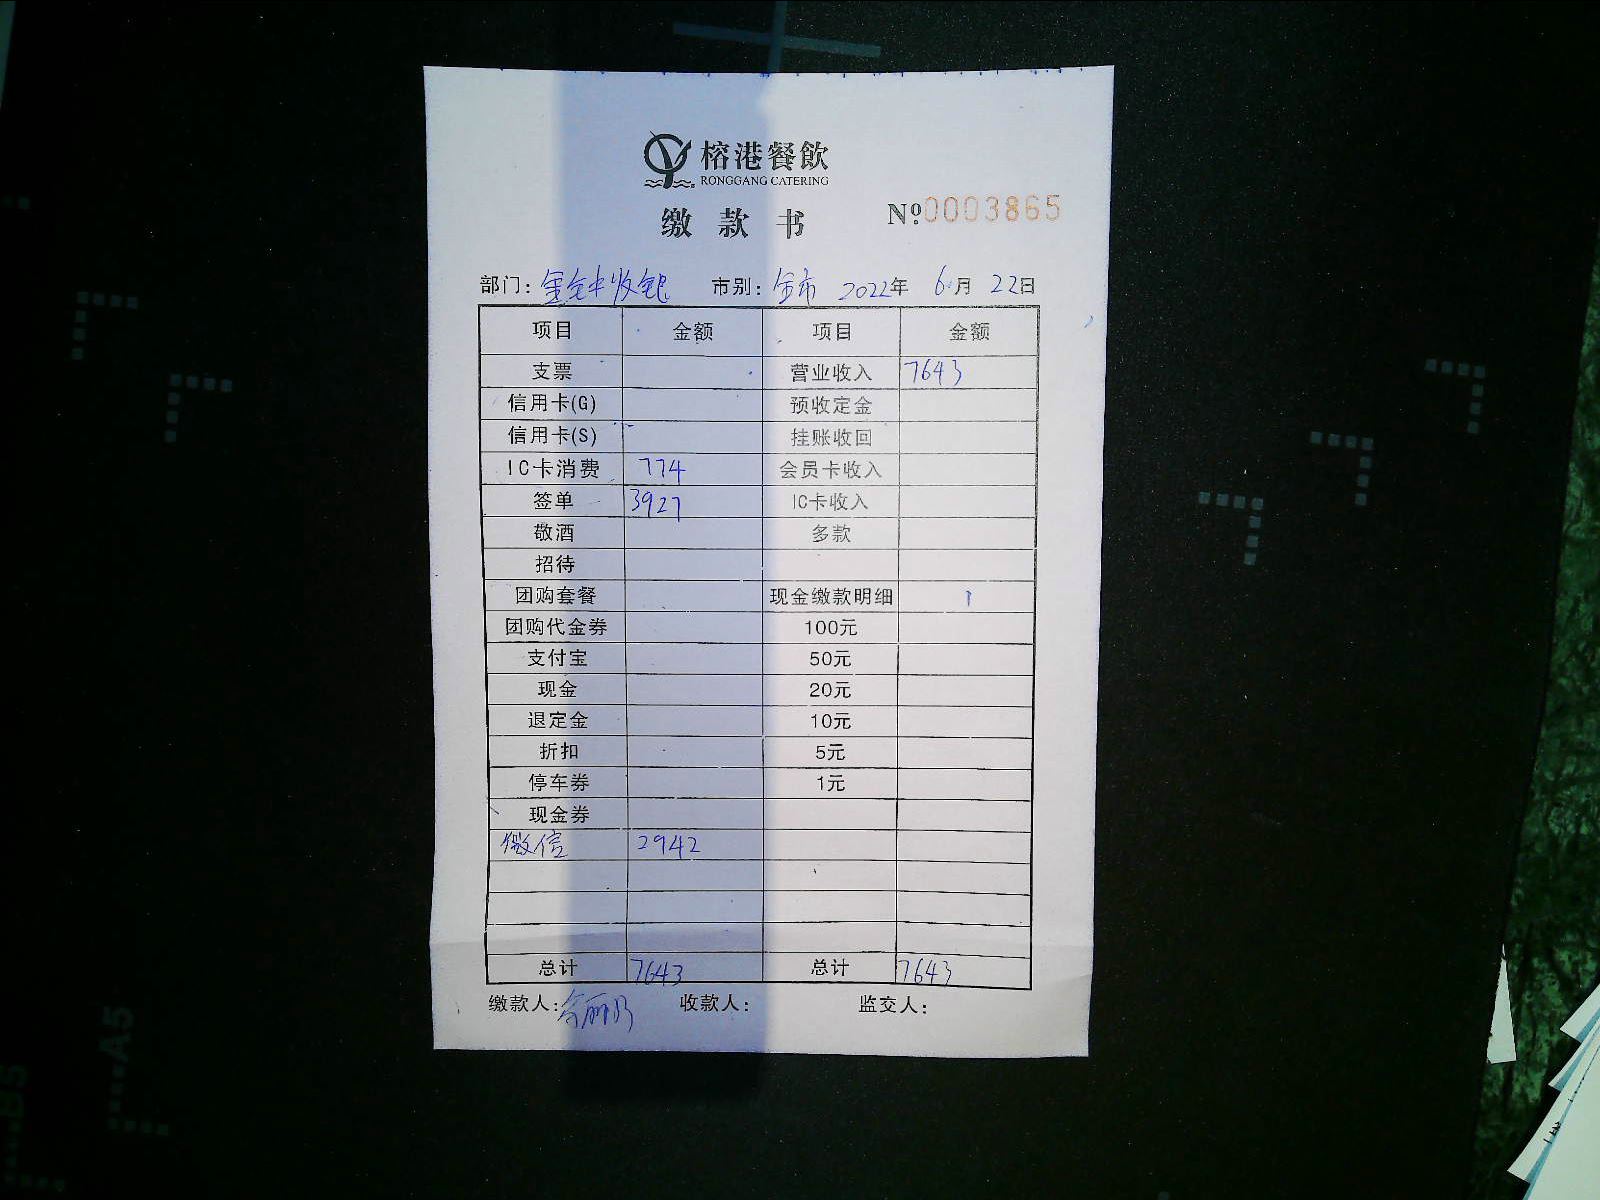 榕港餐飲
RONGGANG CATERING
缴款书 №0003865
部门: 市别: 全市 2022年 6月 22日
项目 金额 项目 金额
支票 营业收入 7643
信用卡(G) 预收定金
信用卡(S) 挂账收回
IC卡消费 774 会员卡收入
签单 3927 IC卡收入
敬酒 多款
招待
团购套餐 现金缴款明细
团购代金券 100元
支付宝 50元
现金 20元
退定金 10元
折扣 5元
停车券 1元
现金券
微信 2942
总计 7643 总计 7643
缴款人: 收款人: 监交人:
A5
B5